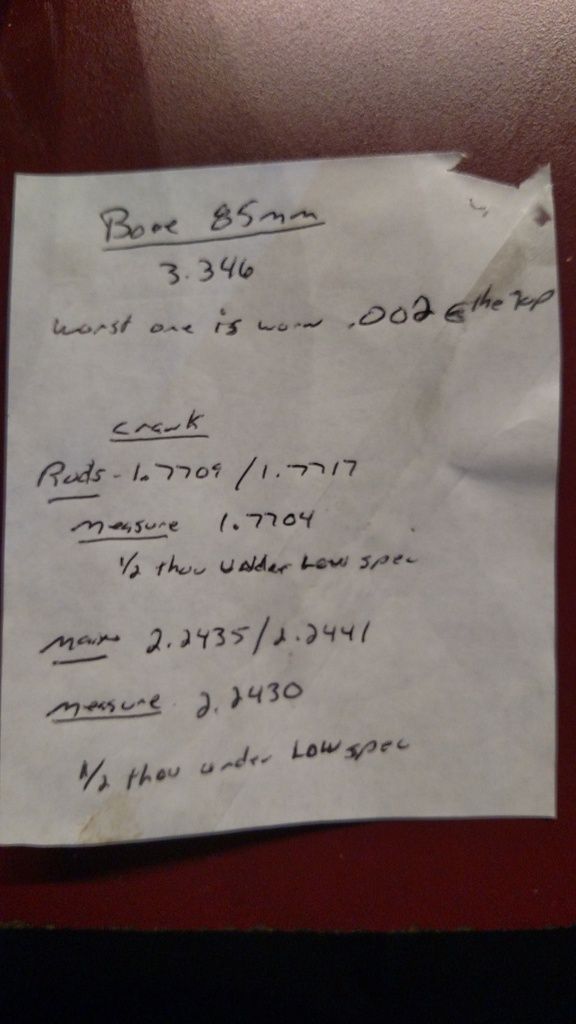 Bore 85mm
3.346
worst one is worn .002 @ the top
crank
Rods - 1.7709 / 1.7717
measure 1.7704
1/2 thou under Low spec
mains 2.2435 / 2.2441
measure 2.2430
1/2 thou under Low spec